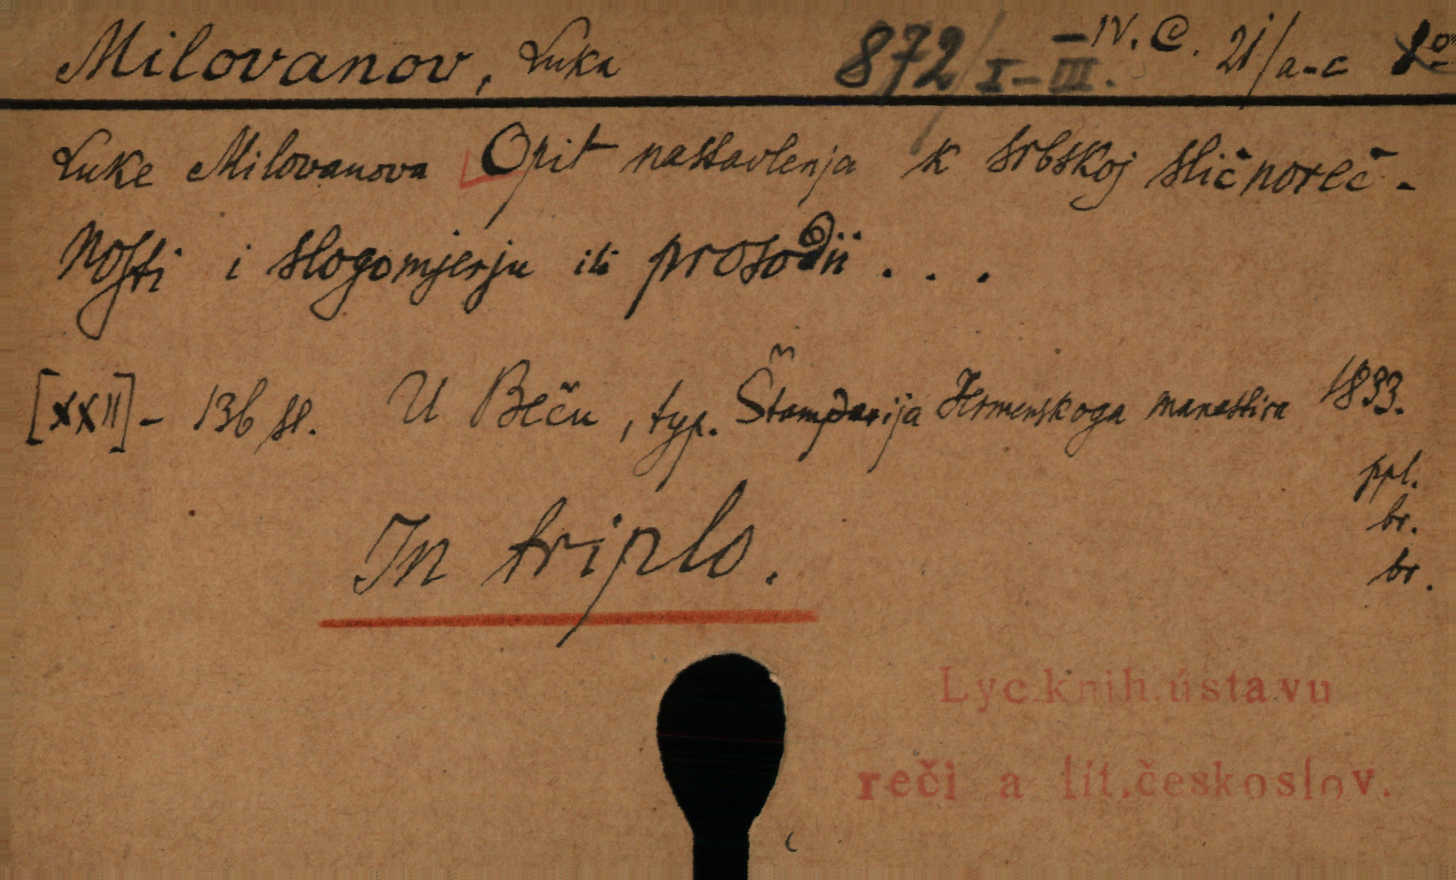 Milovanov, Luka 872/I-III. -IV. C. 21/a-c 8º
Luke Milovanova Opit nastavlenja k srbskoj sličnoreč-
nosti i slogomjerju ili prosodii . . .
[XXII] - 136 st. U Beču, typ. Štamparija Jermenskoga manastira 1833.
ppl.
br.
br.
In triplo.
Lyc. knih. ústavu
reči a lit. českoslov.